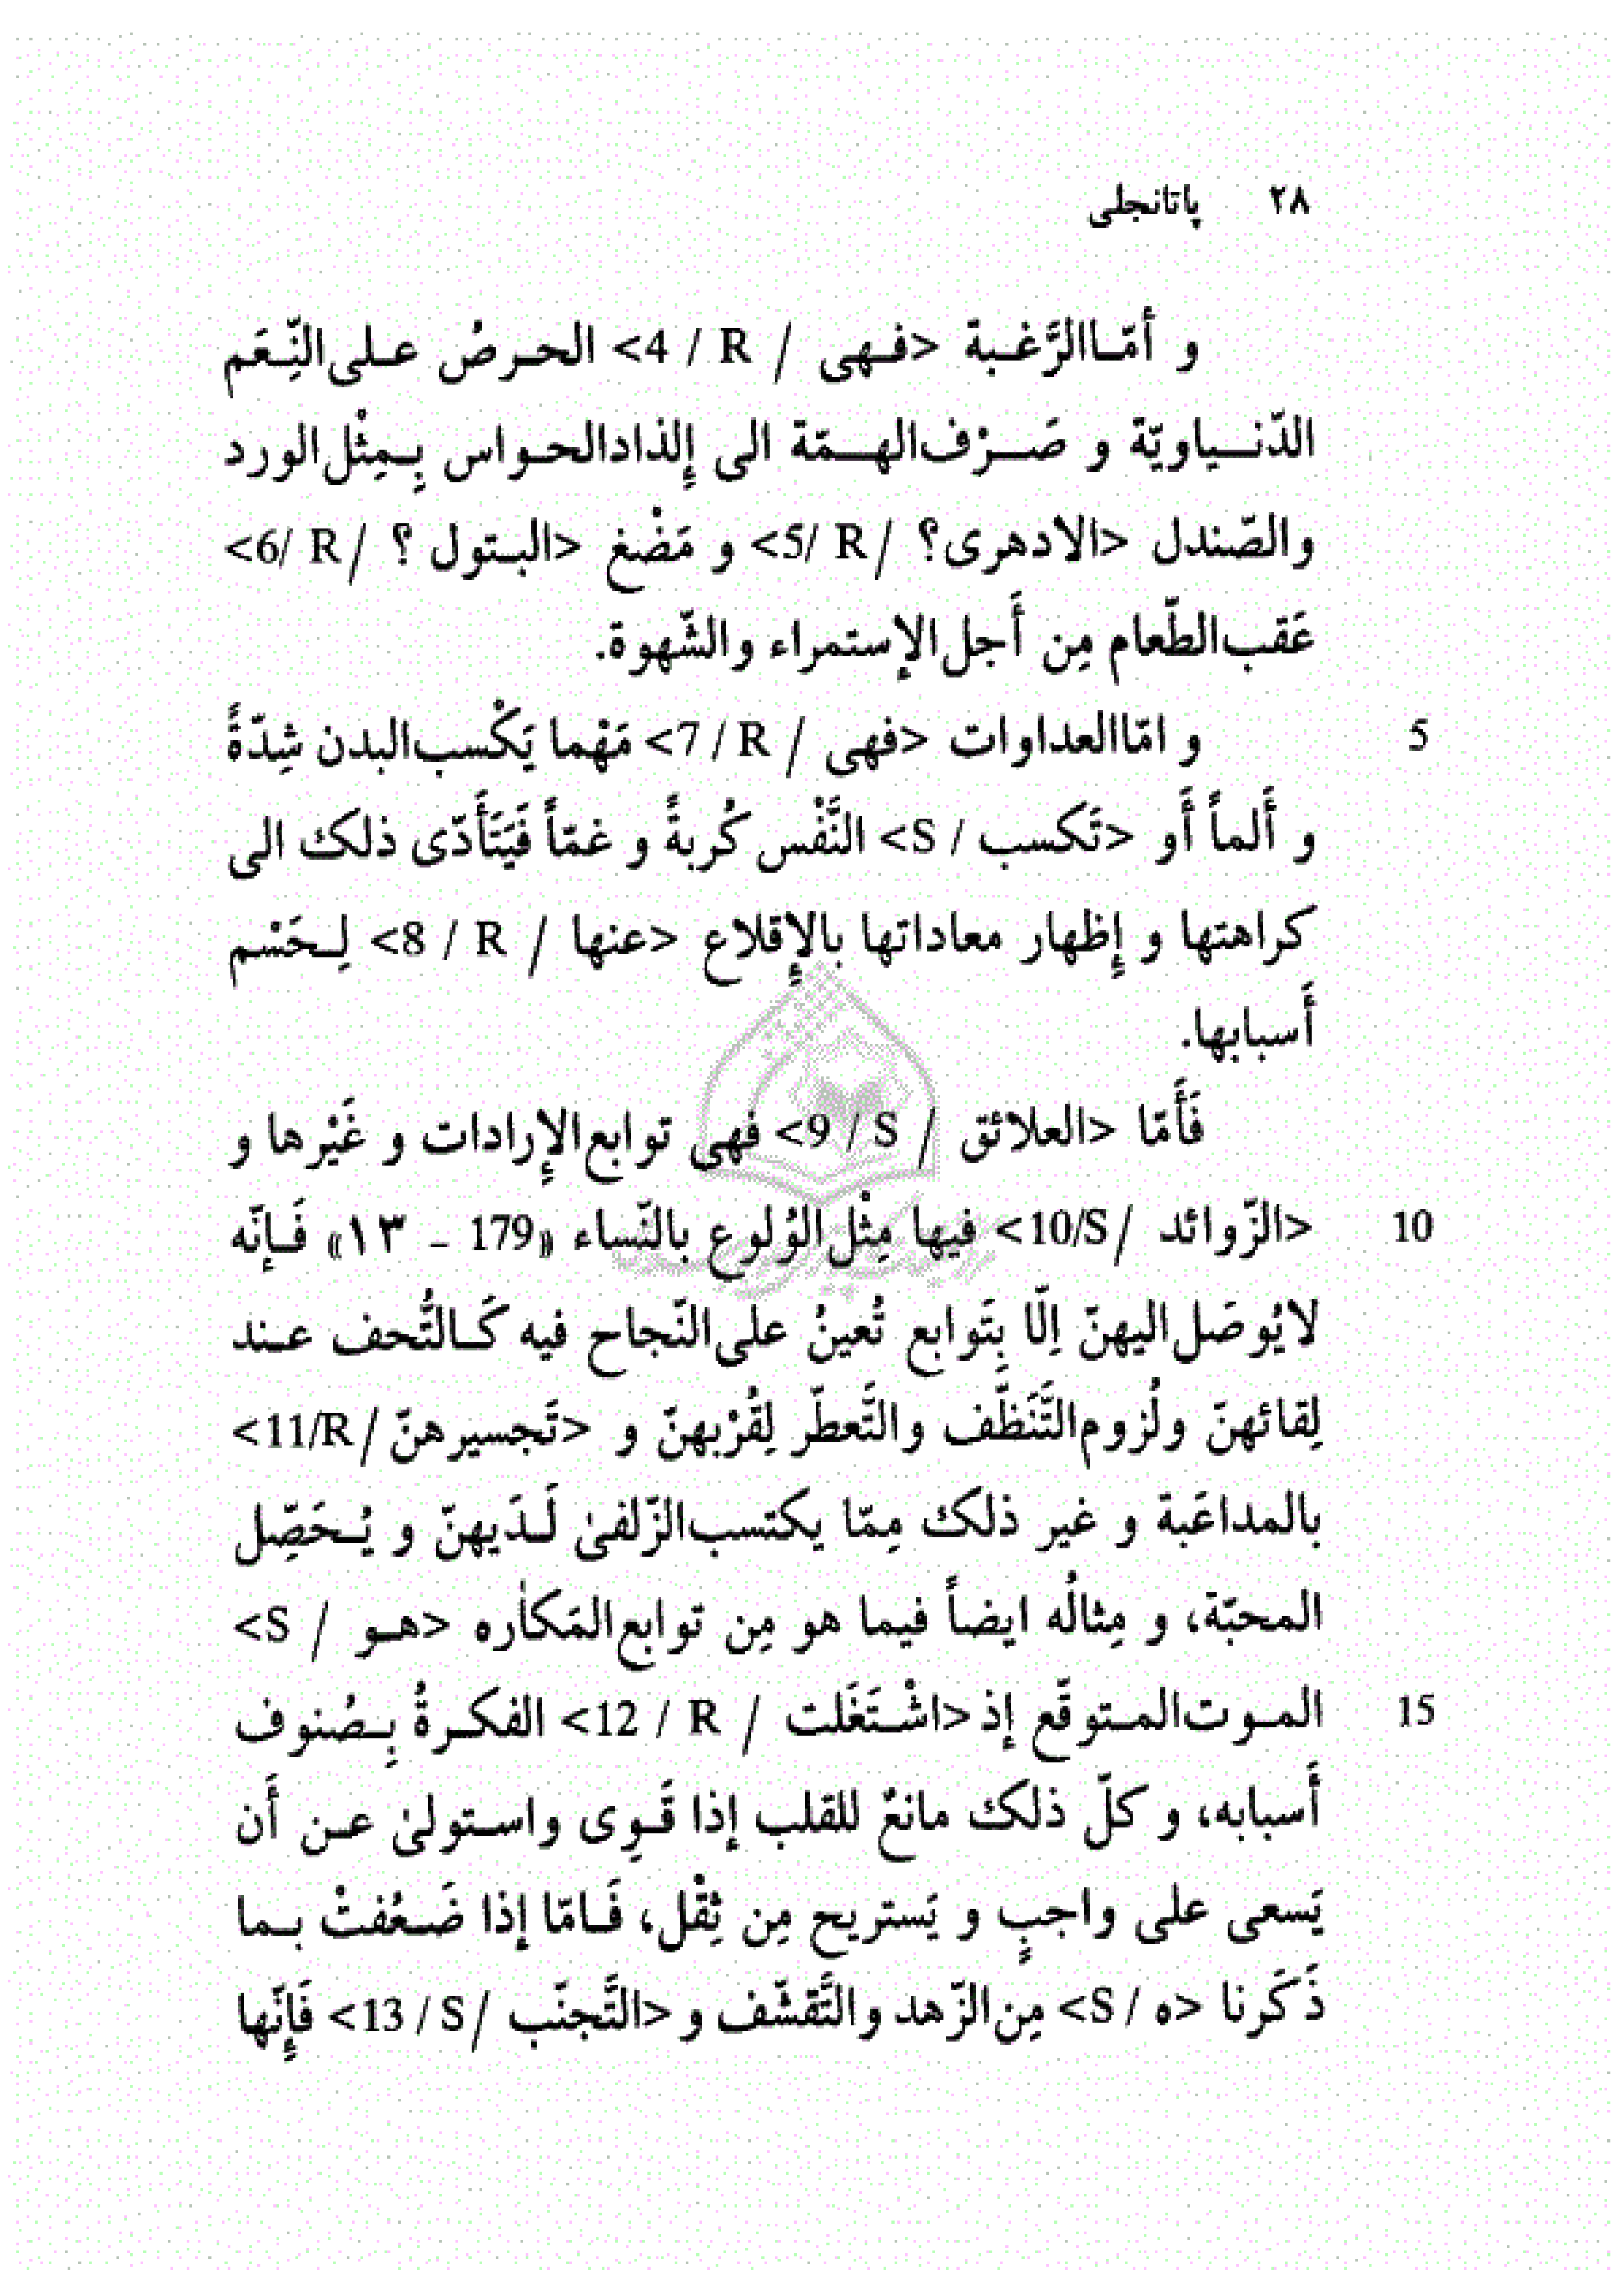 ٢٨ پاتانجلی
و أمّاالرَّغبة <فهی / R / 4> الحرصُ علی‌النِّعَم
الدّنیاویّة و صَرْف‌الهمّة الی إِلذاذالحواس بِمِثْل‌الورد
والصّندل <الادهری؟ / R /5> و مَضْغ <البتول ؟ / R /6>
عَقب‌الطّعام مِن أَجل‌الإستمراء والشّهوة.
5 و امّاالعداوات <فهی / R / 7> مَهْما یَکْسب‌البدن شِدّةً
و أَلماً أَو <تَکسب / S> النَّفْس کُربةً و غمّاً فَیَتَأَدّی ذلک الی
کراهتها و إِظهار معاداتها بالإِقلاع <عنها / R / 8> لِحَسْم
أَسبابها.
فَأَمّا <العلائق / S / 9> فهی توابع‌الإِرادات و غَیْرها و
10 <الزّوائد /S/10> فیها مِثْل‌الوُلوع بالنّساء «179 - ١٣» فَإنّه
لایُوصَل‌الیهنّ اِلّا بِتَوابع تُعینُ علی‌النّجاح فیه کَالتُّحف عند
لِقائهنّ ولُزوم‌التَّنَظّف والتَّعطّر لِقُرْبهنّ و <تَجسیرهنّ /R/11>
بالمداعَبة و غیر ذلک مِمّا یکتسب‌الزّلفیٰ لَدَیهنّ و یُحَصِّل
المحبّة، و مِثالُه ایضاً فیما هو مِن توابع‌المَکاٰره <هو / S>
15 الموت‌المتوقَّع إذ <اشْتَغَلت / R / 12> الفکرةُ بِصُنوف
أَسبابه، و کلّ ذلک مانعٌ للقلب إذا قَوِی واستولیٰ عن أَن
یَسعی علی واجبٍ و یَستریح مِن ثِقْل، فَامّا إذا ضَعُفتْ بما
ذَکَرنا <ه / S> مِن‌الزّهد والتَّقشّف و <التَّجنّب /S / 13> فَإِنّها